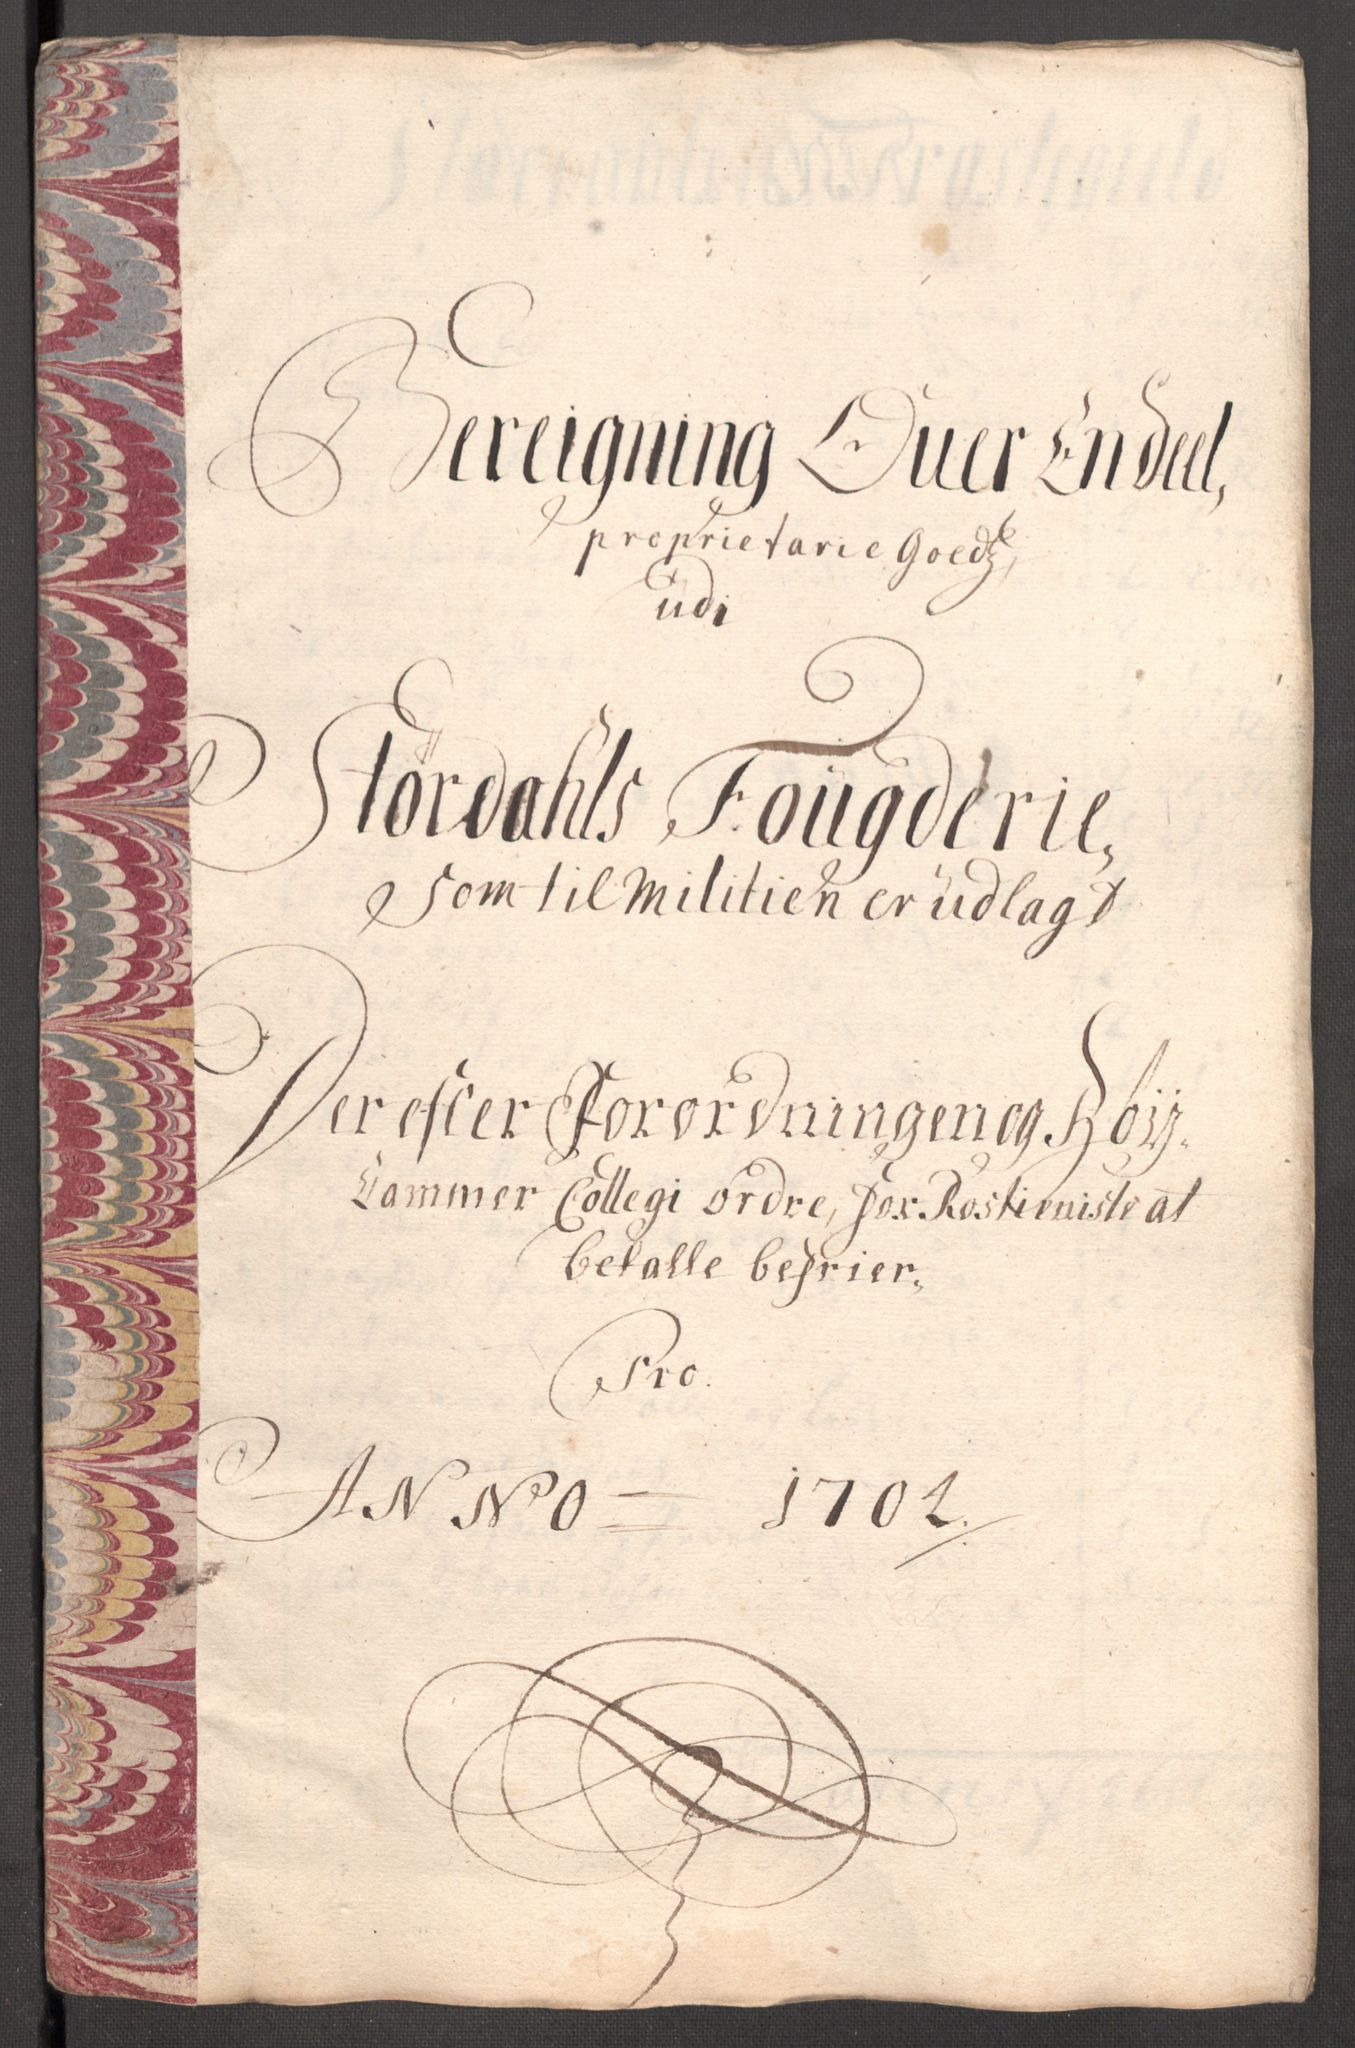 Bereigning Ofuer Endeel,
proprietarie Goedtz,
udi
Størdahls Fougderie,
som til Militien er udlagt
Der efter Forordningen og Høÿ-
Cammer Collegi ordre, for Rostieniste at
betalle befrier,
Pro.
ANNO = 1702.